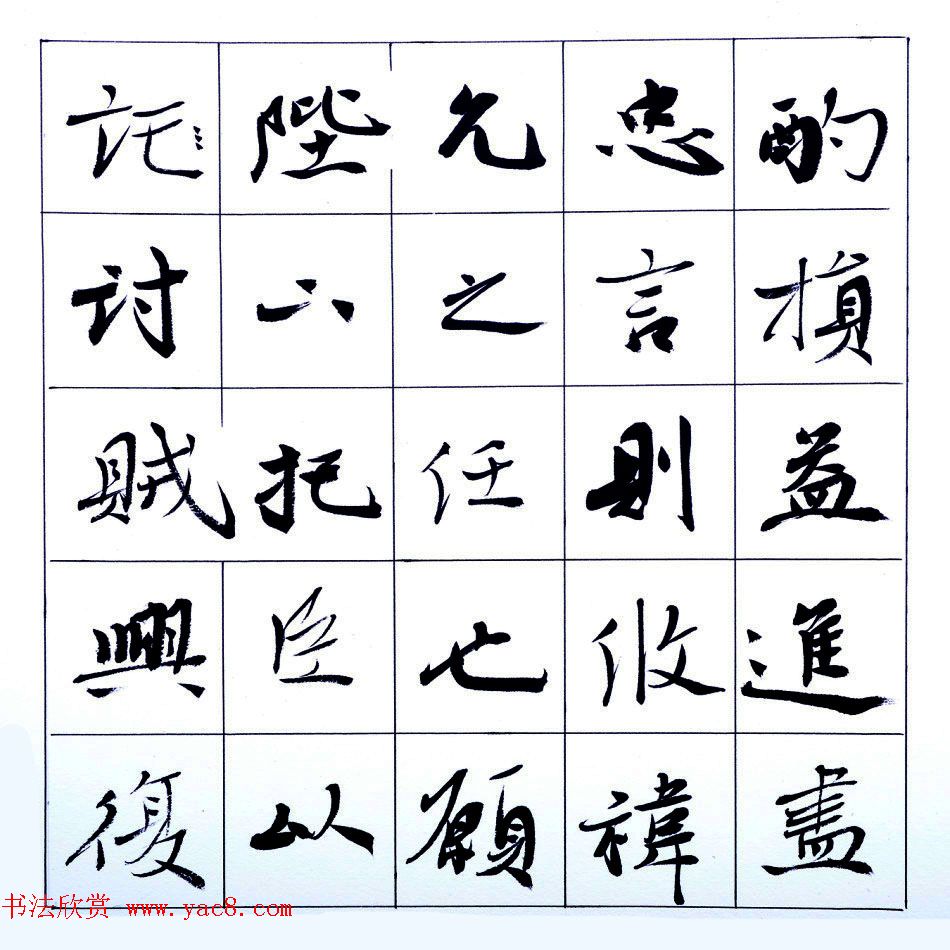 酌損益進盡
忠言則攸禕
允之任也願
陛下托臣以
託討賊興復
书法欣赏 www.yac8.com